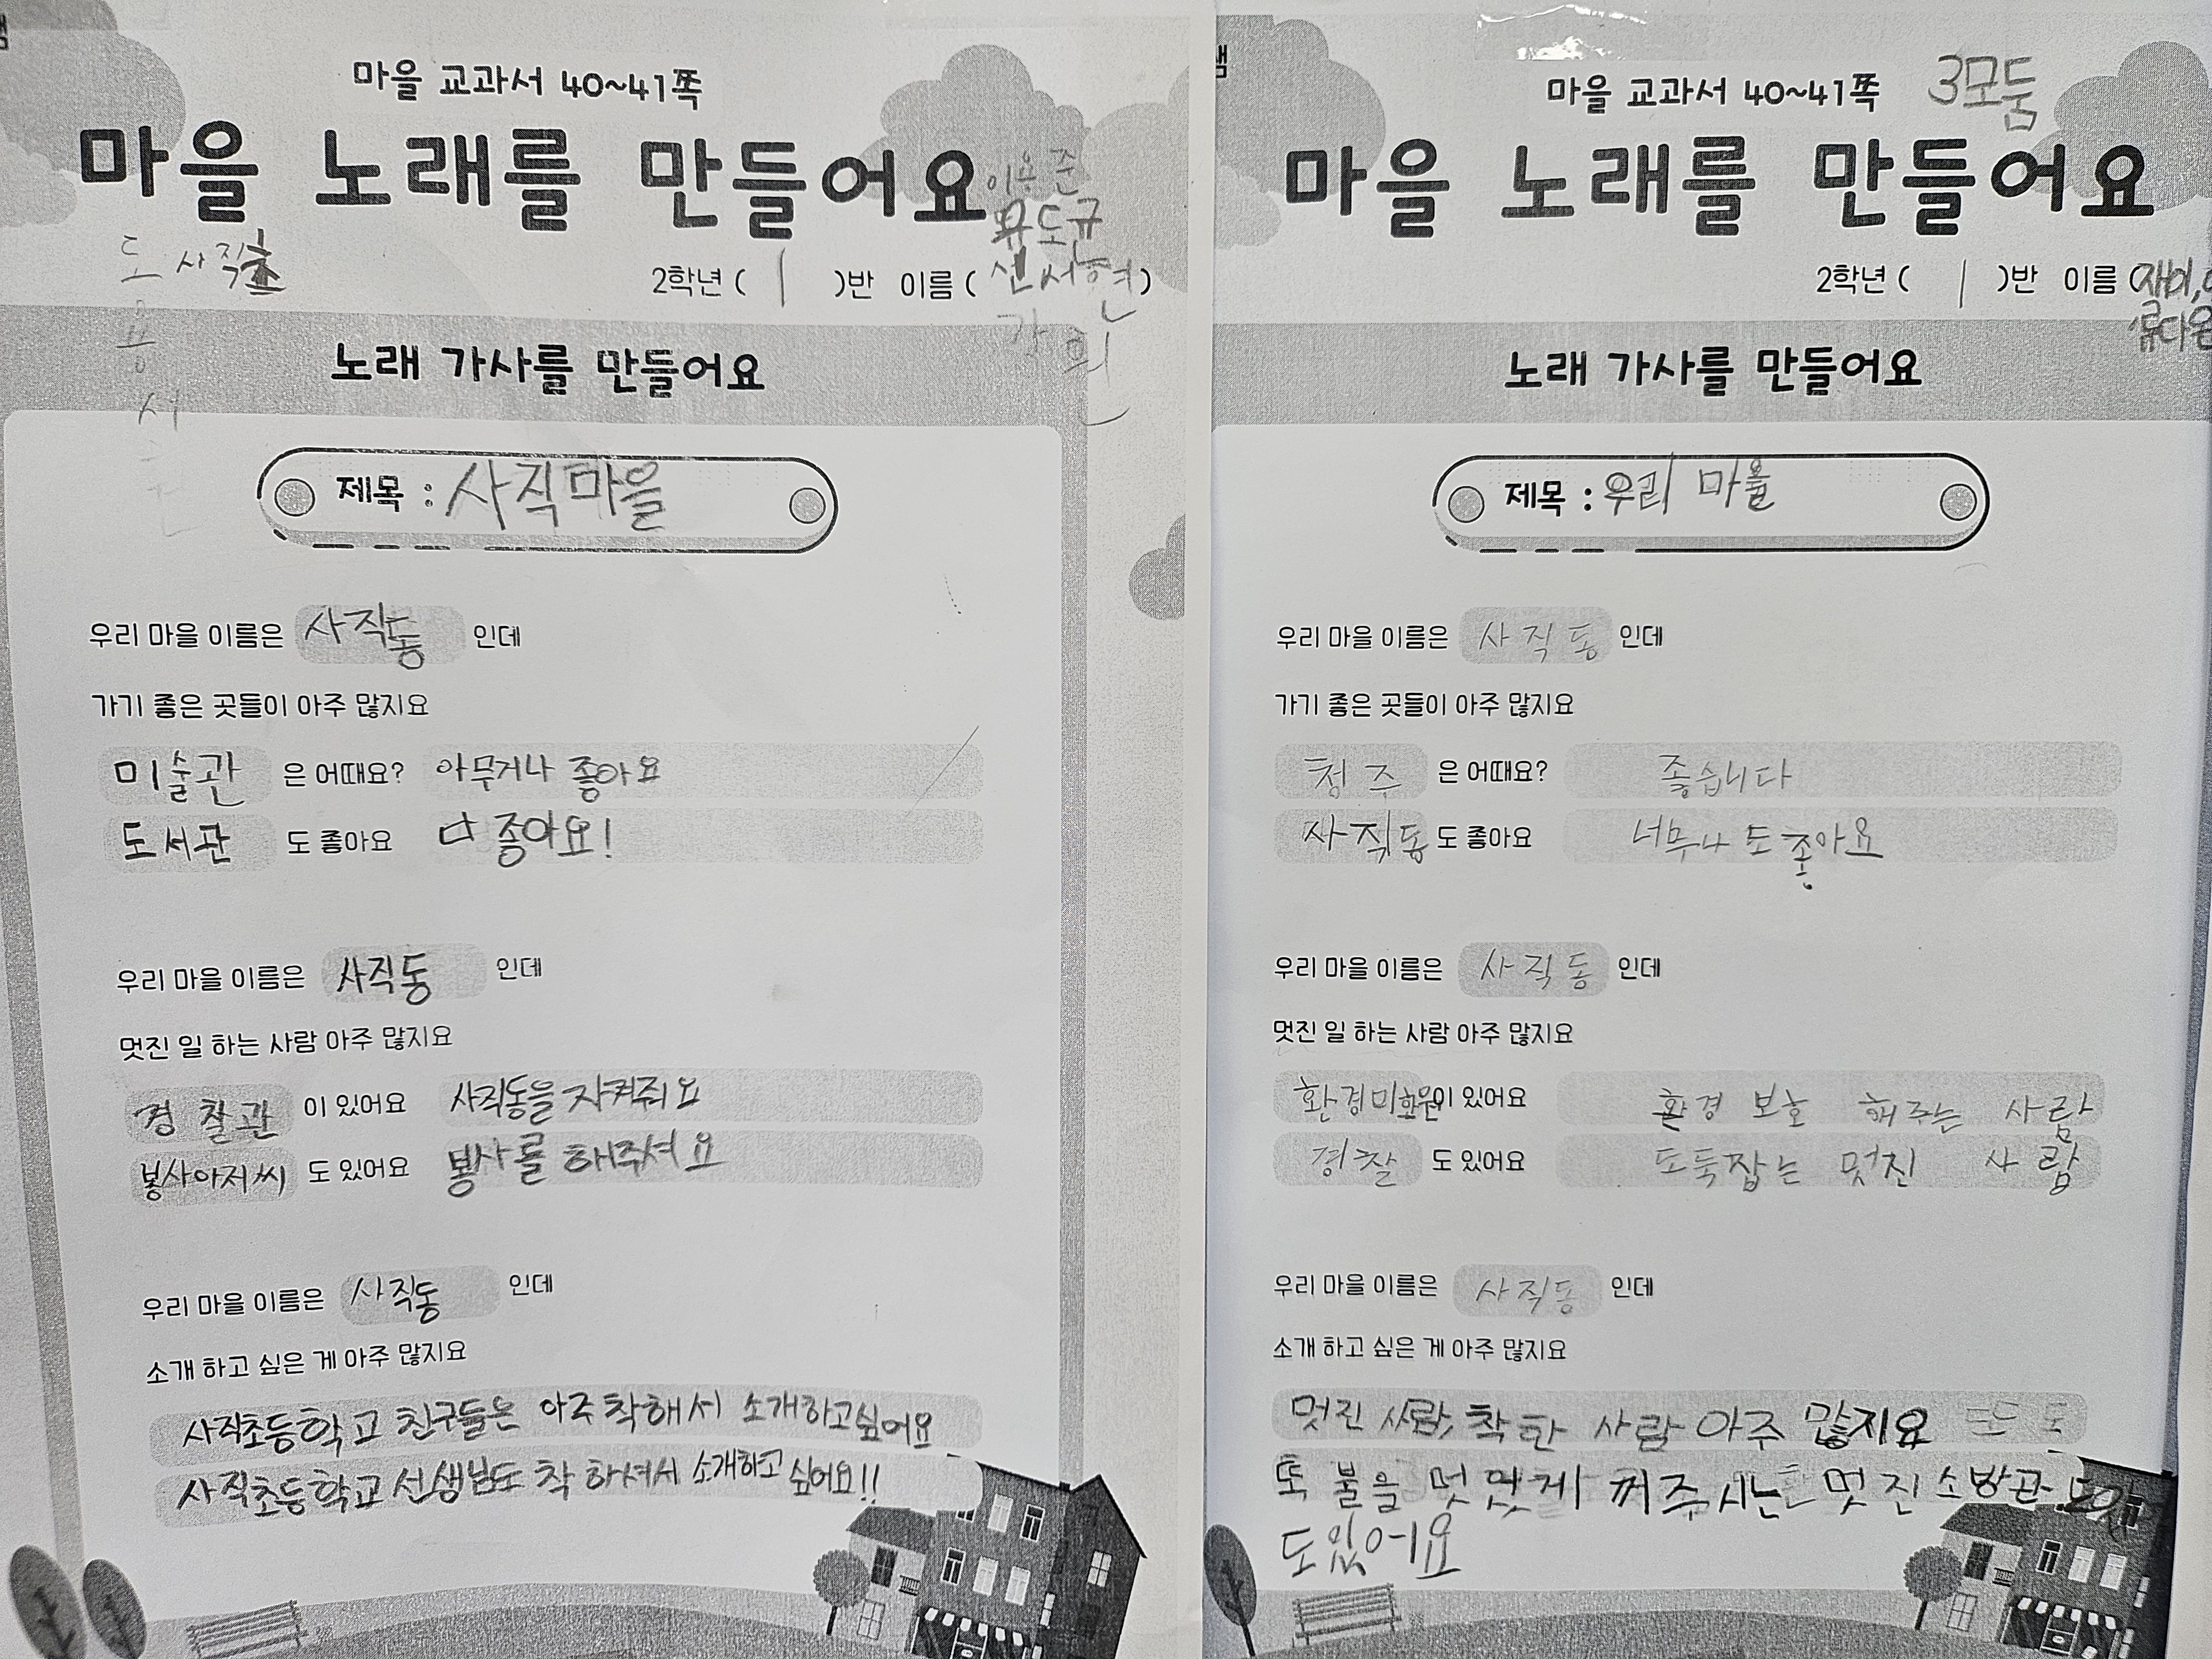 마을 교과서 40~41쪽
마을 노래를 만들어요
이용준
도규
사직초
2학년 ( 1 )반 이름 ( 신서현 )
노래 가사를 만들어요
제목 : 사직마을
우리 마을 이름은 사직동 인데
가기 좋은 곳들이 아주 많지요
미술관 은 어때요? 아무거나 좋아요
도서관 도 좋아요 다 좋아요!
우리 마을 이름은 사직동 인데
멋진 일 하는 사람 아주 많지요
경찰관 이 있어요 사직동을 지켜줘요
봉사아저씨 도 있어요 봉사를 해주셔요
우리 마을 이름은 사직동 인데
소개 하고 싶은 게 아주 많지요
사직초등학교 친구들은 아주 착해서 소개하고싶어요
사직초등학교 선생님도 착하셔서 소개하고 싶어요!!
마을 교과서 40~41쪽 3모둠
마을 노래를 만들어요
2학년 ( 1 )반 이름 (재이,
류다온
노래 가사를 만들어요
제목 : 우리 마을
우리 마을 이름은 사직동 인데
가기 좋은 곳들이 아주 많지요
청주 은 어때요? 좋습니다
사직동 도 좋아요 너무나도 좋아요
우리 마을 이름은 사직동 인데
멋진 일 하는 사람 아주 많지요
환경미화원이 있어요 환경 보호 해주는 사람
경찰 도 있어요 도둑잡는 멋진 사람
우리 마을 이름은 사직동 인데
소개 하고 싶은 게 아주 많지요
멋진 사람, 착한 사람 아주 많지요
또 불을 멋있게 꺼주시는 멋진 소방관
도있어요